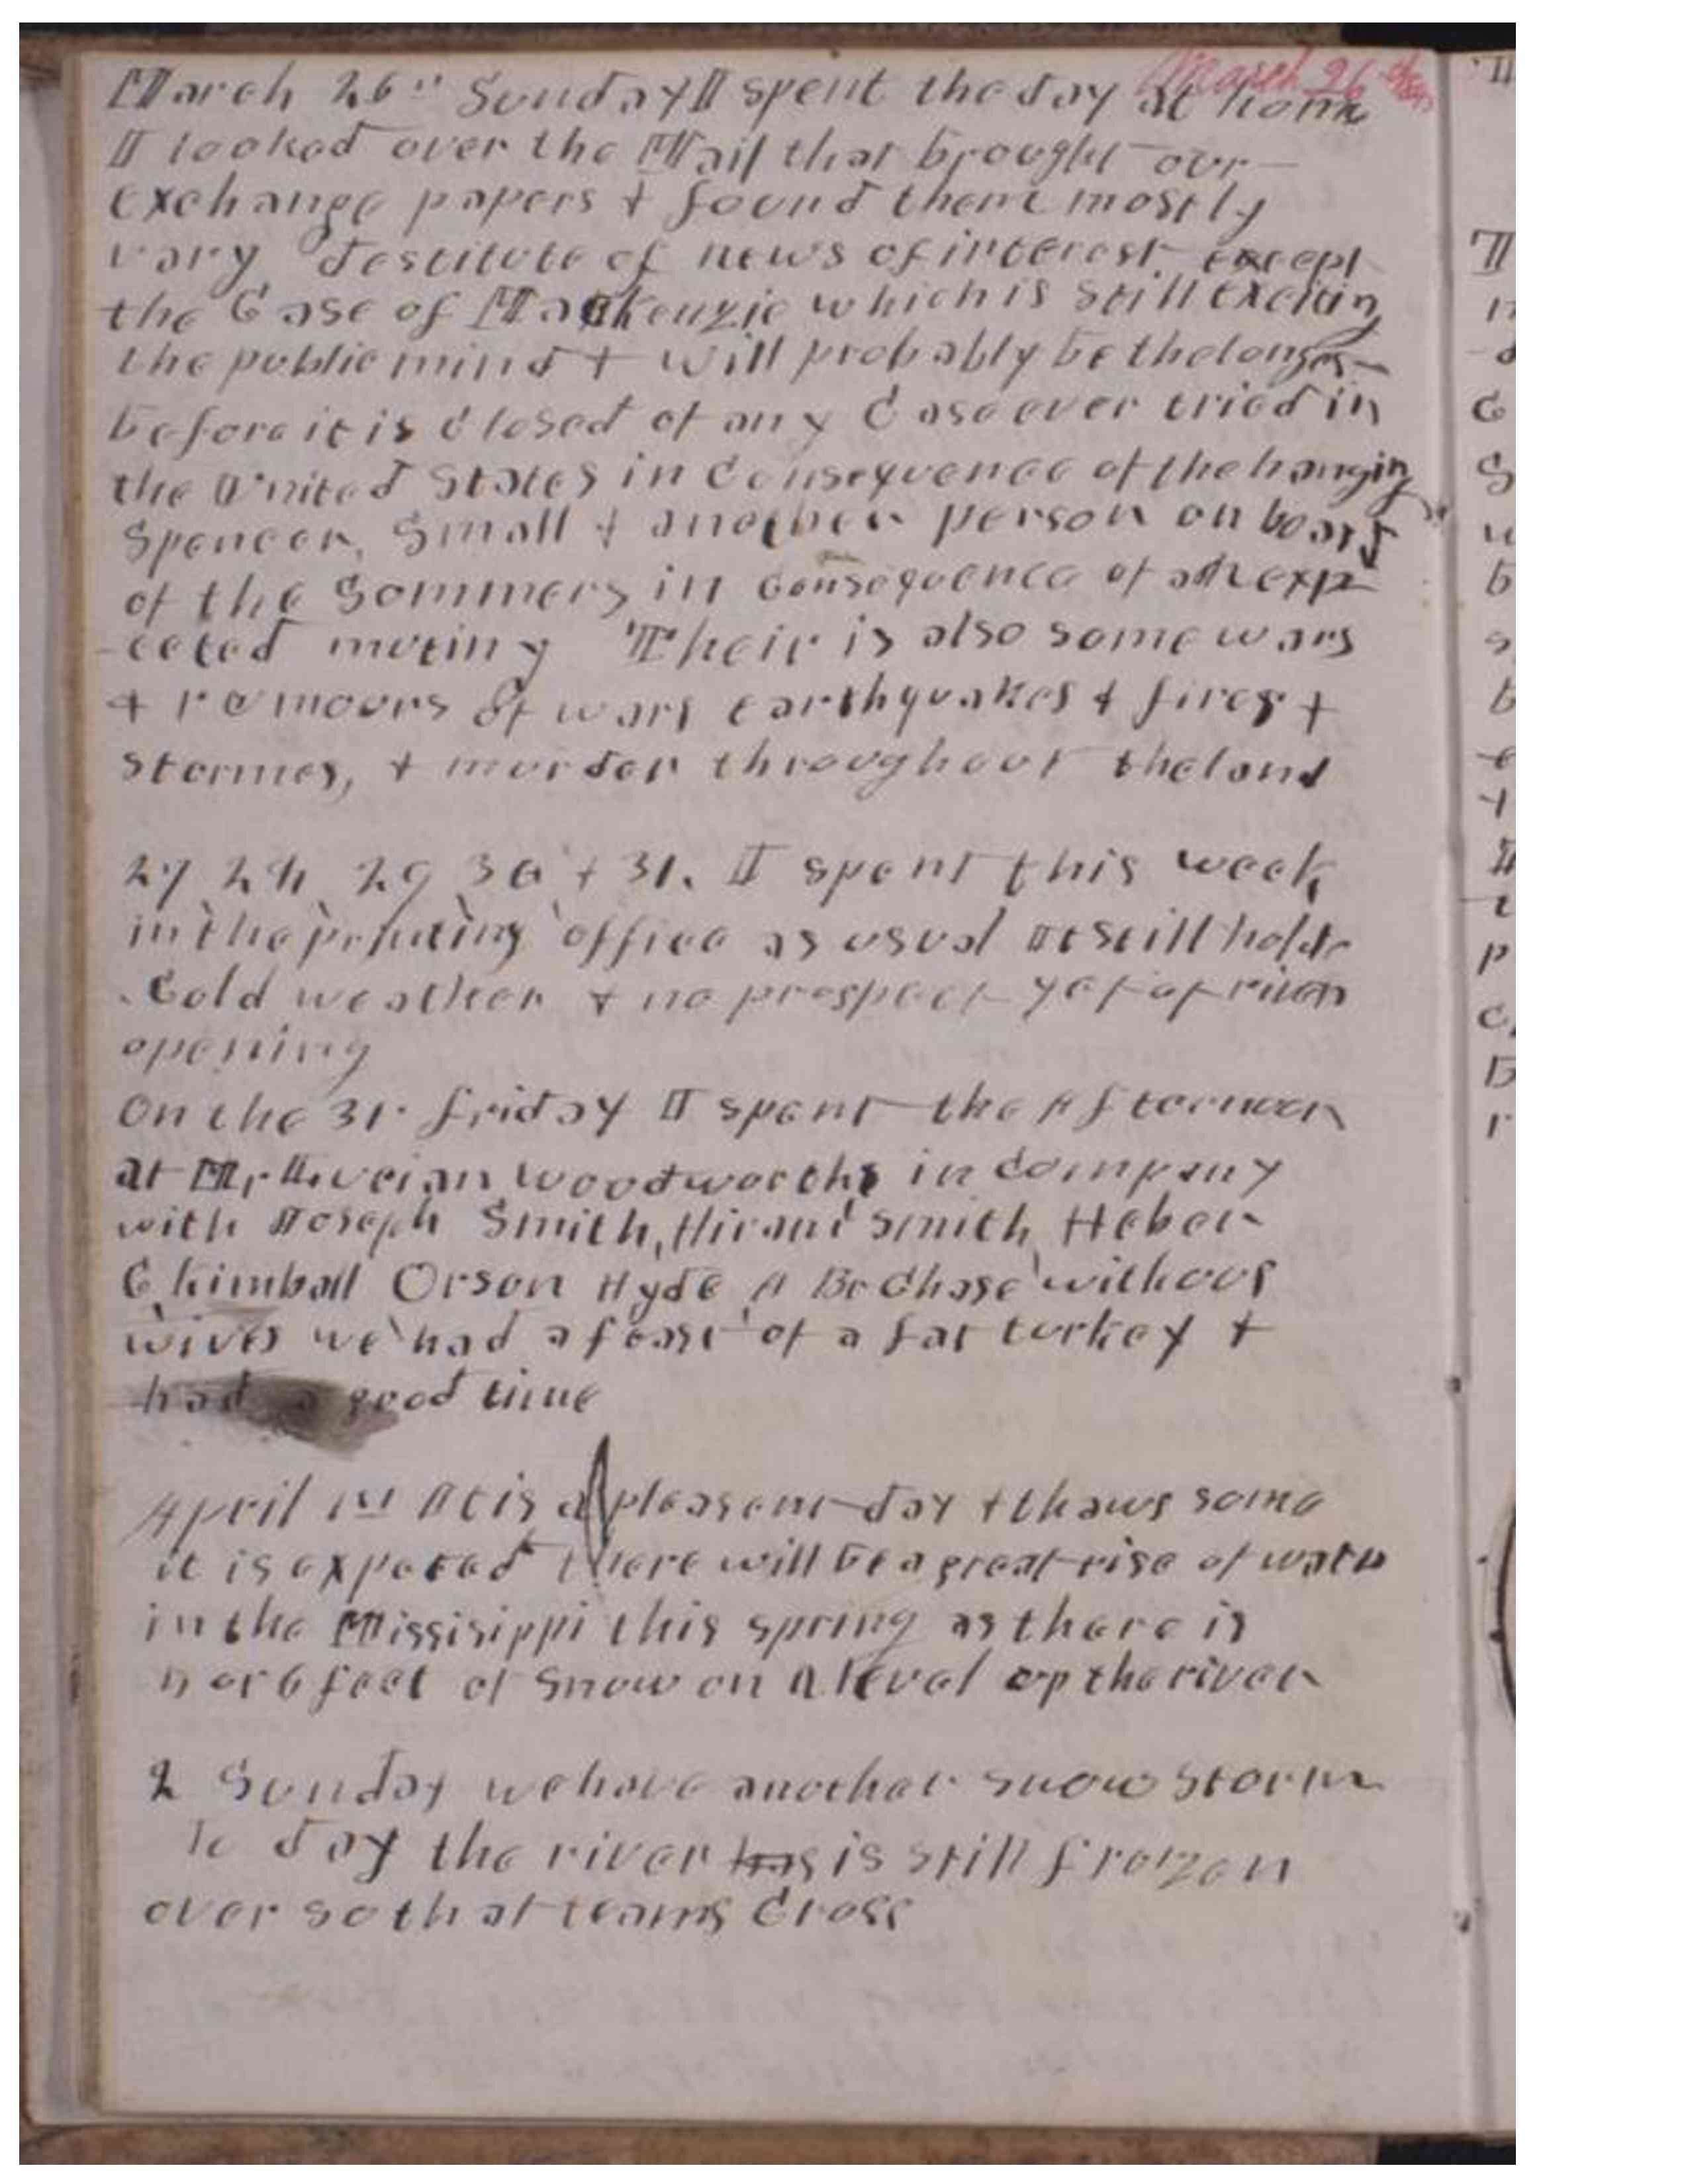 March 26th Sunday I spent the day at home
March 26
I looked over the Mail that brought our
exchange papers + found them mostly
vary destitute of news of interest except
the Case of MacKenzie which is still exciting
the public mind + will probably be the longest
before it is Closed of any Case ever tried in
the United States in Consequence of the hanging
Spencer, Small + another person on board
of the Sommers in Consequence of an exp
-ected mutiny Their is also some wars
+ rumours of wars earthquakes + fires +
stormes, + murder throughout the land
27, 28, 29, 30 + 31. I spent this week
in the printing office as usual it still holds
Cold weather + no prospect yet of river
opening
On the 31. friday I spent the Afternoon
at Mr Lucian Woodworths in Company
with Joseph Smith, Hiram Smith, Heber
C Kimball Orson Hyde A Br Chase without
wives we had a feast of a fat turkey +
had a good time
April 1st It is a pleasent day + thaws some
it is expected there will be a great rise of water
in the Missisippi this spring as there is
5 or 6 feet of snow on A level up the river
2 Sunday we have another snow storm
to day the river has is still frozen
over so that teams Cross